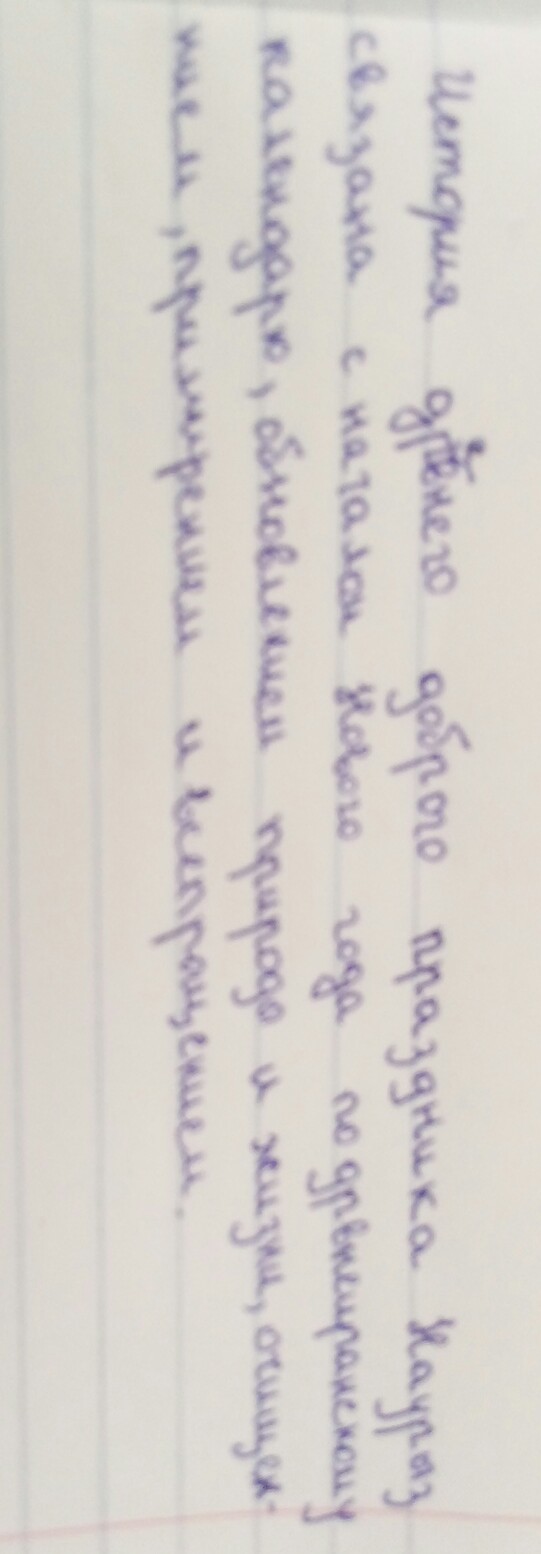 История древнего доброго праздника Наурыз
связана с началом Нового года по древнеиранскому
календарю, обновлением природы и жизни, очищен-
нием, примирением и всепрощением.